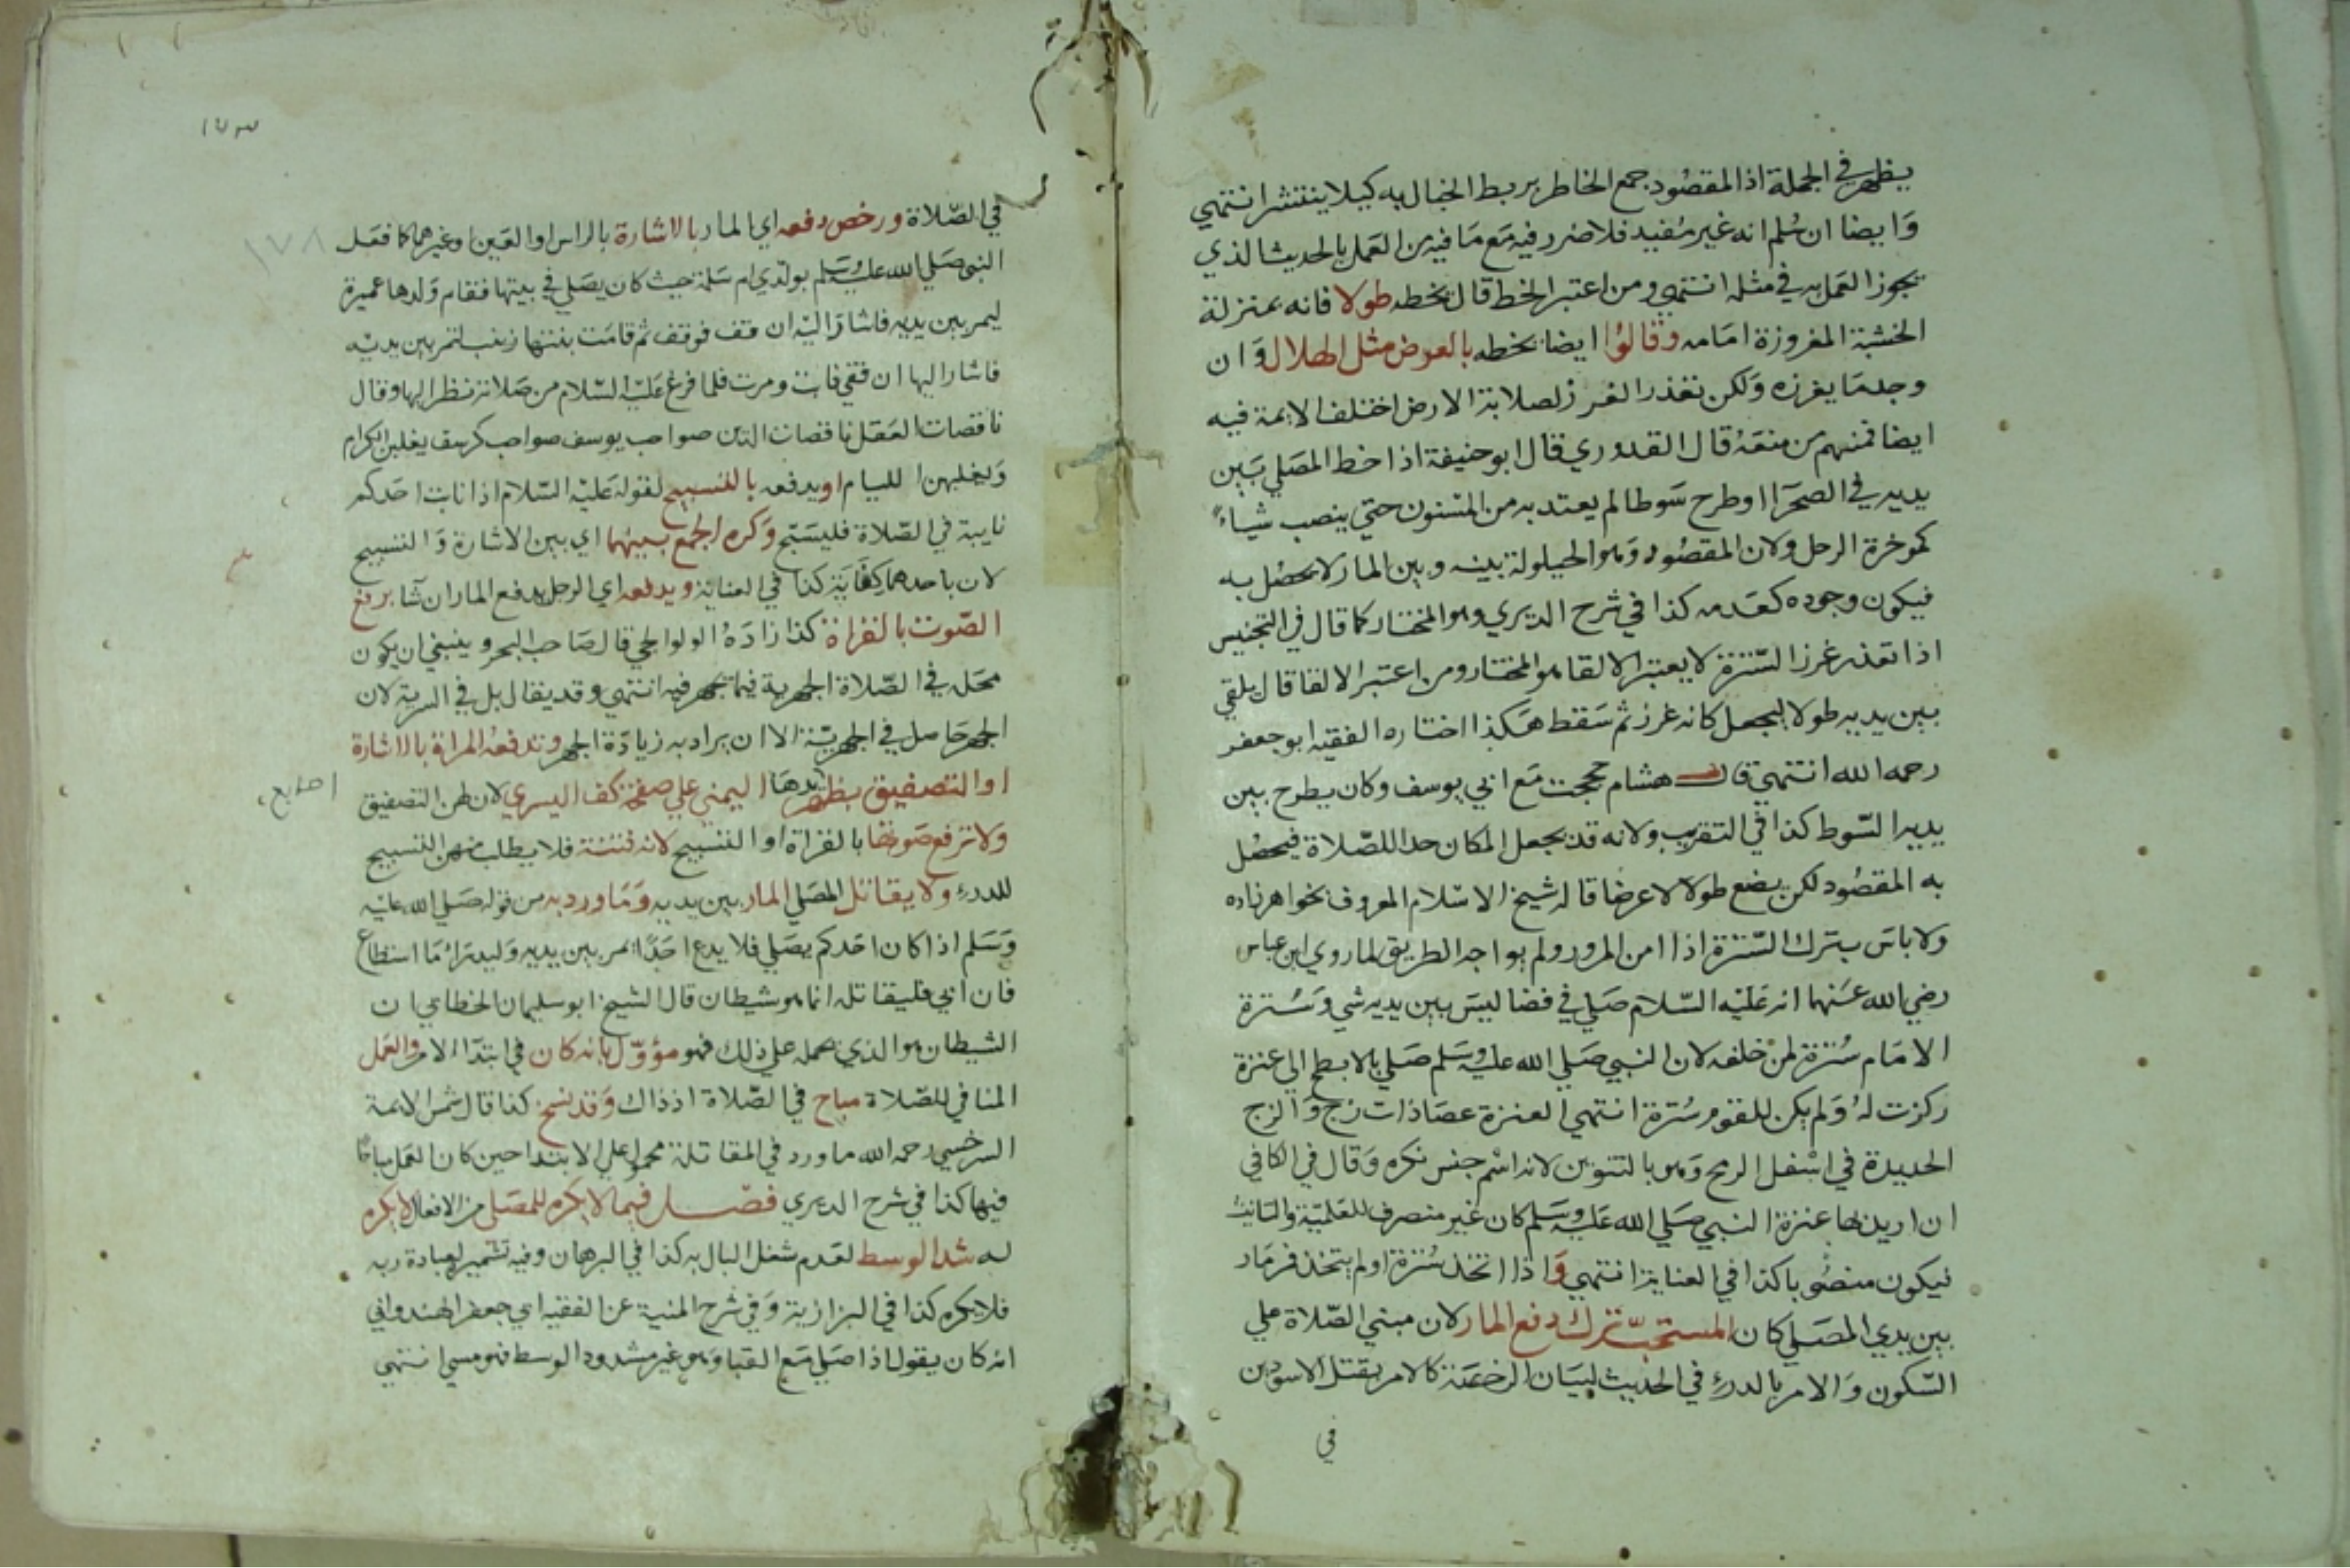 يظهر في الجملة اذ المقصود جمع الخاطر بربط الخيال به كيلا ينتشر انتهي
وايضا ان سلم انه غير مفيد فلا ضرر فيه مع ما فيه من العمل بالحديث الذي
يجوز العمل به في مثله انتهي ومن اعتبر الخط قال يخطه طولا فانه بمنزلة
الخشبة المغروزة امامه وقالوا ايضا يخطه بالعرض مثل الهلال وان
وجد ما يغرزه ولكن تعذر الغرز لصلابة الارض اختلف الايمة فيه
ايضا فمنهم من منعه قال القدوري قال ابو حنيفة اذا خط المصلي بين
يديه في الصحرا او طرح سوطا لم يعتد به من المسنون حتي ينصب شياء
كموخرة الرحل ولان المقصود وهو الحيلولة بينه وبين المار لا يحصل به
فيكون وجوده كعدمه كذا في شرح الديري وهو المختار كما قال في التجنيس
اذا تعذر غرز السترة لا يعتبر الالقا هو المختار ومن اعتبر الالقا قال يلقي
بين يديه طولا ليجعل كانه غرز ثم سقط هكذا اختاره الفقيه ابو جعفر
رحمه الله انتهي قال هشام حججت مع ابي يوسف وكان يطرح بين
يديه السوط كذا في التقريب ولانه قد يجعل المكان حدا للصلاة فيحصل
به المقصود لكن يضع طولا لا عرضا قاله شيخ الاسلام المعروف بخواهر زاده
ولا باس بترك السترة اذا امن المرور ولم يواجه الطريق لما روي ابن عباس
رضي الله عنهما انه عليه السلام صلي في فضا ليس بين يديه شي وسترة
الامام سترة لمن خلفه لان النبي صلي الله عليه وسلم صلي بالابطح الي عنزة
ركزت له ولم يكن للقوم سترة انتهي العنزة عصا ذات زج والزج
الحديدة في اسفل الرمح وهو بالتنوين لانه اسم جنس نكره وقال في الكافي
ان اريد بها عنزة النبي صلي الله عليه وسلم كان غير منصرف للعلمية والتانيث
فيكون منصوبا كذا في العناية انتهي واذا اتخذ سترة او لم يتخذ فمر مار
بين يدي المصلي كان المستحب ترك دفع المار لان مبني الصلاة علي
السكون والامر بالدرء في الحديث لبيان الرخصة كالامر بقتل الاسودين
في
١٧٣
١٧٨
في الصلاة ورخص دفعه اي المار بالاشارة بالراس او العين او غيرهما كما فعل
النبي صلي الله عليه وسلم بولدي ام سلمة حيث كان يصلي في بيتها فقام ولدها عميرة
ليمر بين يديه فاشار اليه ان قف فوقف ثم قامت بنتها زينب لتمر بين يديه
فاشار اليها ان قفي فابت ومرت فلما فرغ عليه السلام من صلاته نظر اليها وقال
ناقصات العقل ناقصات الدين صواحب يوسف صواحب كرسف يغلبن الكرام
ويغلبهن الليام او يدفعه بالتسبيح لقوله عليه السلام اذا نابت احدكم
نايبة في الصلاة فليسبح وكره الجمع بينهما اي بين الاشارة والتسبيح
لان باحدهما كفاية كذا في العناية ويدفعه اي الرجل يدفع المار ان شا برفع
الصوت بالقراة كذا زاده الولوالجي قال صاحب البحر وينبغي ان يكون
محله في الصلاة الجهرية فيما يجهر فيه انتهي وقد يقال بل في السرية لان
الجهر حاصل في الجهرية الا ان يراد به زيادة الجهر وتدفعه المراة بالاشارة
او التصفيق بظهر يدها اليمني علي صفحة كف اليسري لان لهن التصفيق
اصابع
ولا ترفع صوتها بالقراة او التسبيح لانه فتنة فلا يطلب منهن التسبيح
للدرء ولا يقاتل المصلي المار بين يديه وما ورد به من قوله صلي الله عليه
وسلم اذا كان احدكم يصلي فلا يدع احدا يمر بين يديه وليدراه ما استطاع
فان ابي فليقاتله انما هو شيطان قال الشيخ ابو سليمان الخطابي ان
الشيطان هو الذي يحمله علي ذلك فهو مؤول بانه كان في ابتداء الامر والعمل
المنافي للصلاة مباح في الصلاة اذ ذاك وقد نسخ كذا قال شمس الايمة
السرخسي رحمه الله ما ورد في المقاتلة محمول علي الابتدا حين كان العمل مباحا
فيها كذا في شرح الديري فصل فيما لا يكره للمصلي من الافعال لا يكره
له شد الوسط لعدم شغل البال به كذا في البرهان وفيه تشمير لعبادة ربه
فلا يكره كذا في البزازية وفي شرح المنية عن الفقيه ابي جعفر الهندواني
انه كان يقول اذا صلي مع القبا وهو غير مشدود الوسط فهو مسي انتهي